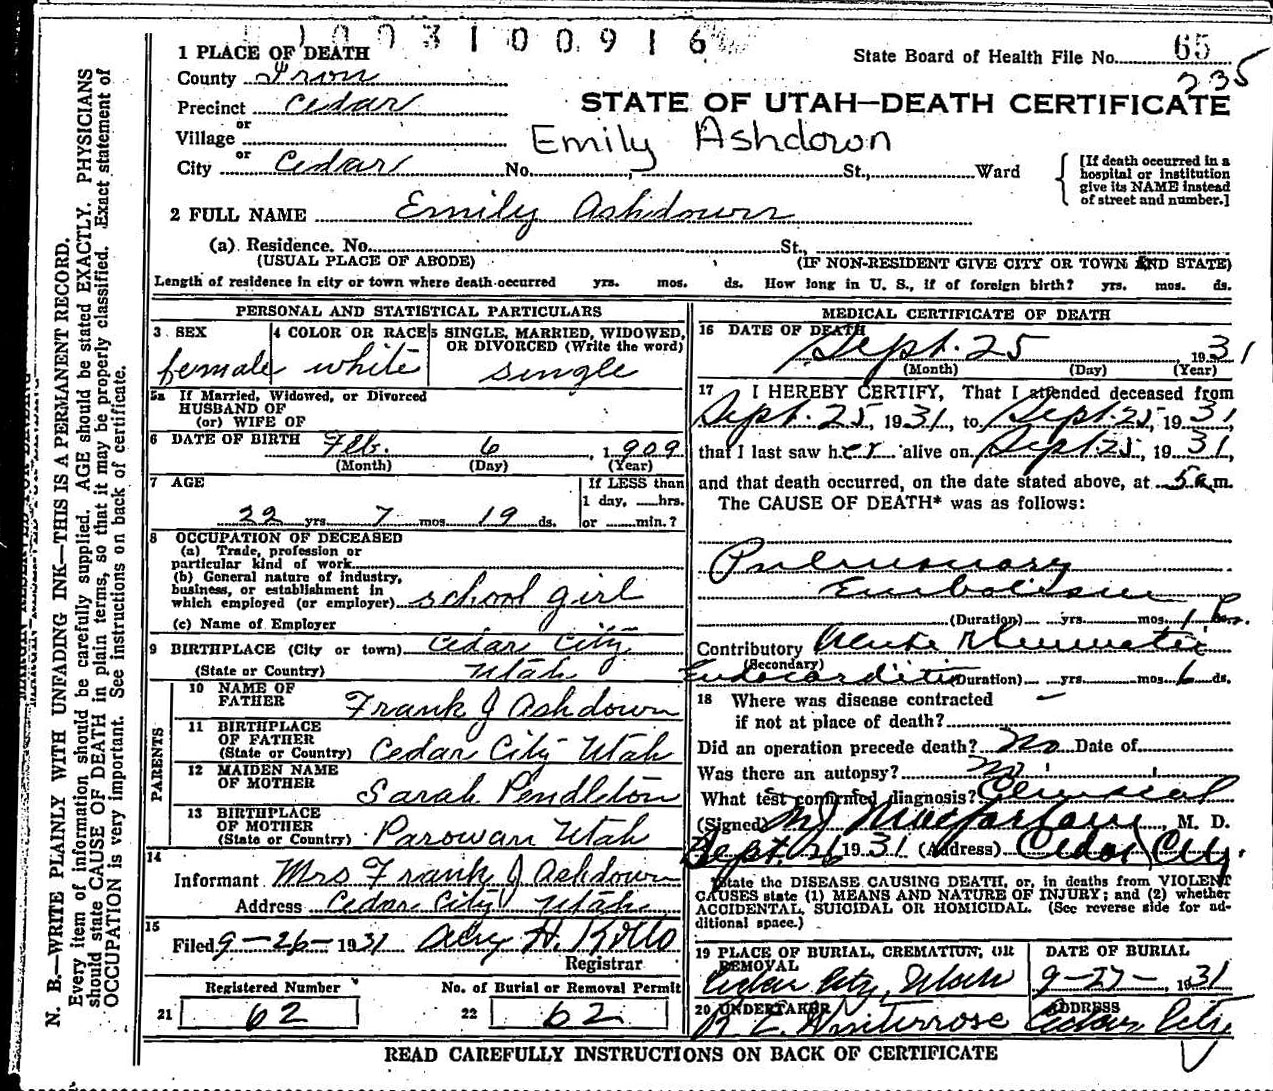 1003100916
1 PLACE OF DEATH
State Board of Health File No. 65
235
County Iron
Precinct Cedar
STATE OF UTAH—DEATH CERTIFICATE
or
Village
Emily Ashdown
City or Cedar No. St., Ward
[If death occurred in a hospital or institution give its NAME instead of street and number.]
2 FULL NAME Emily Ashdown
(a) Residence. No. St.,
(USUAL PLACE OF ABODE) (IF NON-RESIDENT GIVE CITY OR TOWN AND STATE)
Length of residence in city or town where death occurred yrs. mos. ds. How long in U. S., if of foreign birth? yrs. mos. ds.
PERSONAL AND STATISTICAL PARTICULARS
3 SEX 4 COLOR OR RACE 5 SINGLE, MARRIED, WIDOWED, OR DIVORCED (Write the word)
female white single
5a If Married, Widowed, or Divorced
HUSBAND OF
(or) WIFE OF
6 DATE OF BIRTH Feb. 6, 1909
(Month) (Day) (Year)
7 AGE
If LESS than
1 day, hrs.
22 yrs 7 mos 19 ds. or min.?
8 OCCUPATION OF DECEASED
(a) Trade, profession or
particular kind of work
(b) General nature of industry,
business, or establishment in
which employed (or employer) school girl
(c) Name of Employer
9 BIRTHPLACE (City or town) Cedar City
(State or Country) Utah
PARENTS
10 NAME OF
FATHER Frank J Ashdown
11 BIRTHPLACE
OF FATHER
(State or Country) Cedar City Utah
12 MAIDEN NAME
OF MOTHER Sarah Pendleton
13 BIRTHPLACE
OF MOTHER
(State or Country) Parowan Utah
14
Informant Mrs Frank J Ashdown
Address Cedar City Utah
15
Filed 9-26-1931 H. Rollo
Registrar
Registered Number No. of Burial or Removal Permit
21 62 22 62
MEDICAL CERTIFICATE OF DEATH
16 DATE OF DEATH
Sept. 25, 1931
(Month) (Day) (Year)
17 I HEREBY CERTIFY, That I attended deceased from
Sept. 25, 1931, to Sept. 25, 1931,
that I last saw her alive on Sept 25, 1931,
and that death occurred, on the date stated above, at 5 a.m.
The CAUSE OF DEATH* was as follows:
Pulmonary
Embolism
(Duration) yrs. mos. 1 hr.
Contributory Acute Rheumatic
(Secondary)
Endocarditis (Duration) yrs. mos. 6 ds.
18 Where was disease contracted
if not at place of death?
Did an operation precede death? No Date of
Was there an autopsy? no
What test confirmed diagnosis? Clinical
(Signed) M J Macfarlane, M. D.
Sept. 26 1931 (Address) Cedar City.
*State the DISEASE CAUSING DEATH, or, in deaths from VIOLENT
CAUSES state (1) MEANS AND NATURE OF INJURY; and (2) whether
ACCIDENTAL, SUICIDAL OR HOMICIDAL. (See reverse side for additional space.)
19 PLACE OF BURIAL, CREMATION, OR REMOVAL DATE OF BURIAL
Cedar City, Utah 9-27-, 1931
20 UNDERTAKER ADDRESS
Cedar City
READ CAREFULLY INSTRUCTIONS ON BACK OF CERTIFICATE
N. B.—WRITE PLAINLY WITH UNFADING INK—THIS IS A PERMANENT RECORD.
Every item of information should be carefully supplied. AGE should be stated EXACTLY. PHYSICIANS
should state CAUSE OF DEATH in plain terms, so that it may be properly classified. Exact statement of
OCCUPATION is very important. See instructions on back of certificate.